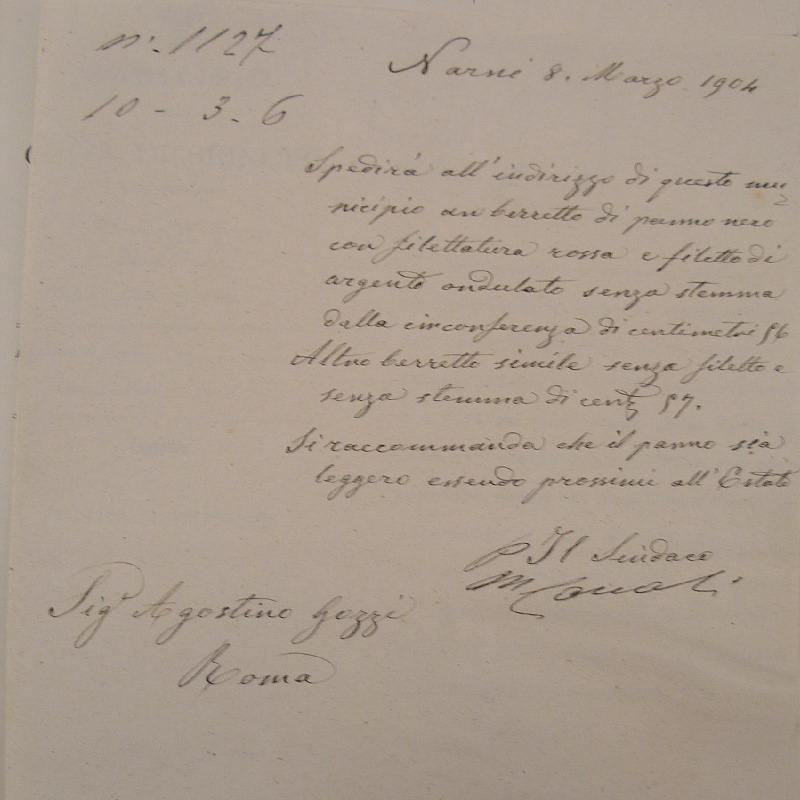 n°. 1127
Narni 8. Marzo 1904
10 - 3 - 6
Spedirà all'indirizzo di questo mu
nicipio un berretto di panno nero
con filettatura rossa e filetto di
argento ondulato senza stemma
dalla circonferenza di centimetri 56
Altro berretto simile senza filetto e
senza stemma di cent. 57.
Si raccommanda che il panno sia
leggero essendo prossimi all'Estate
P Il Sindaco
Sigr Agostino Gozzi
Roma